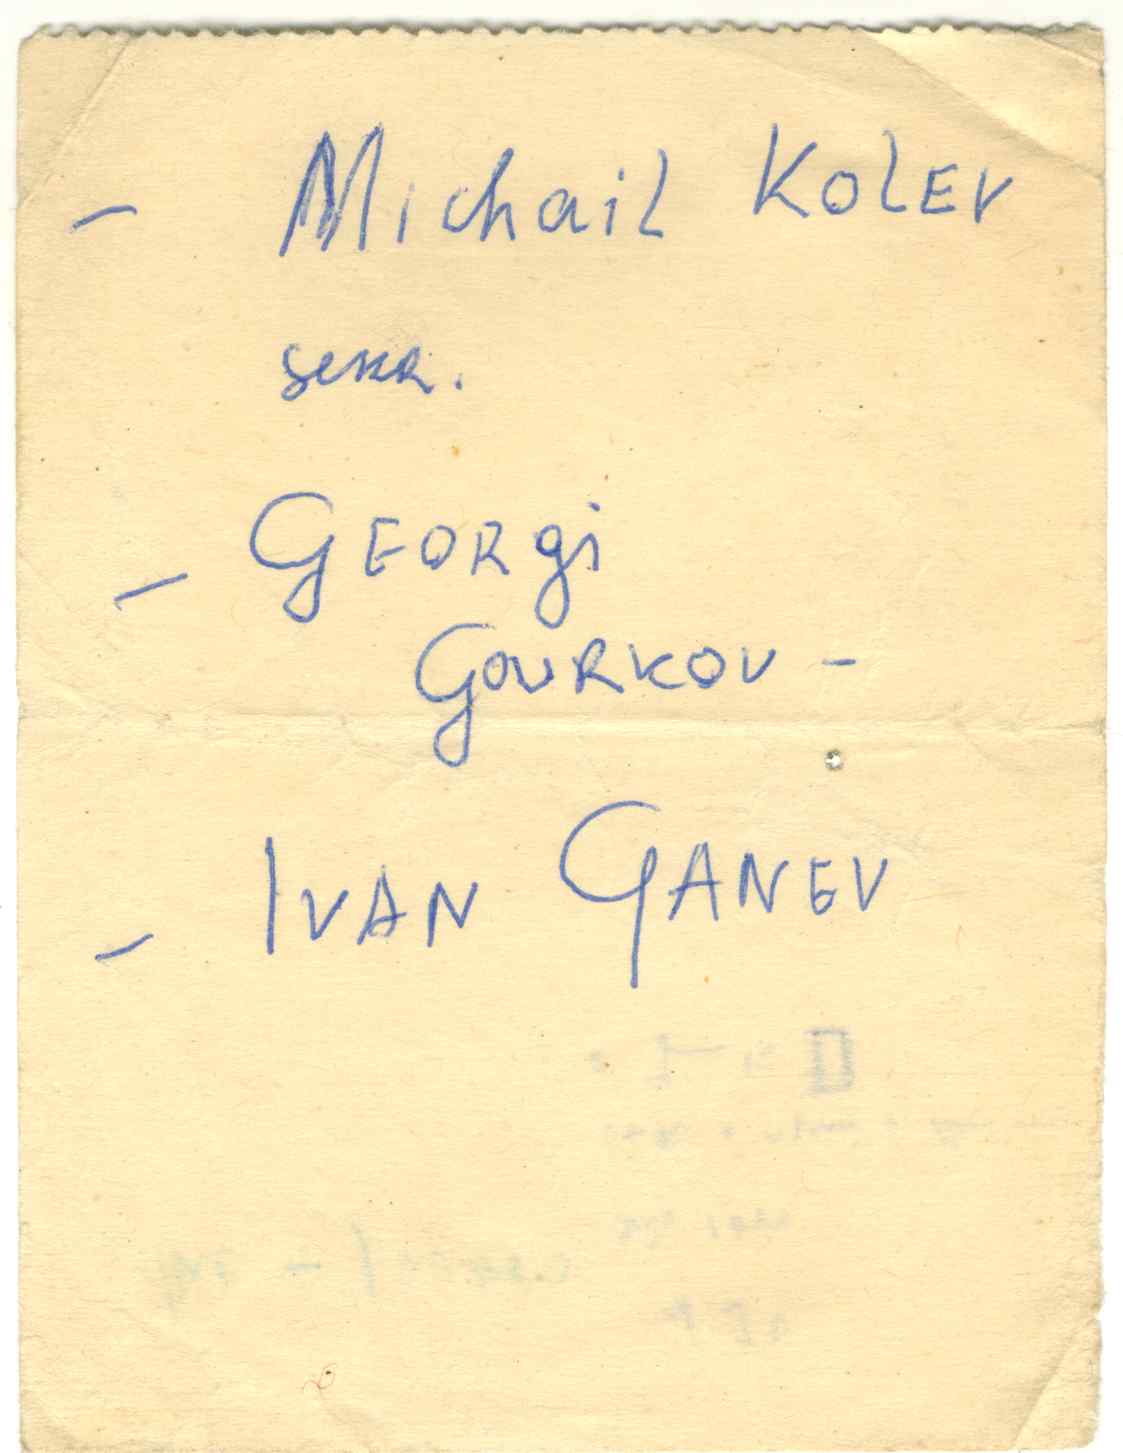 - Michail KOLEV
sekr.
- GEORgi
GOURKOV -
- IVAN GANEV